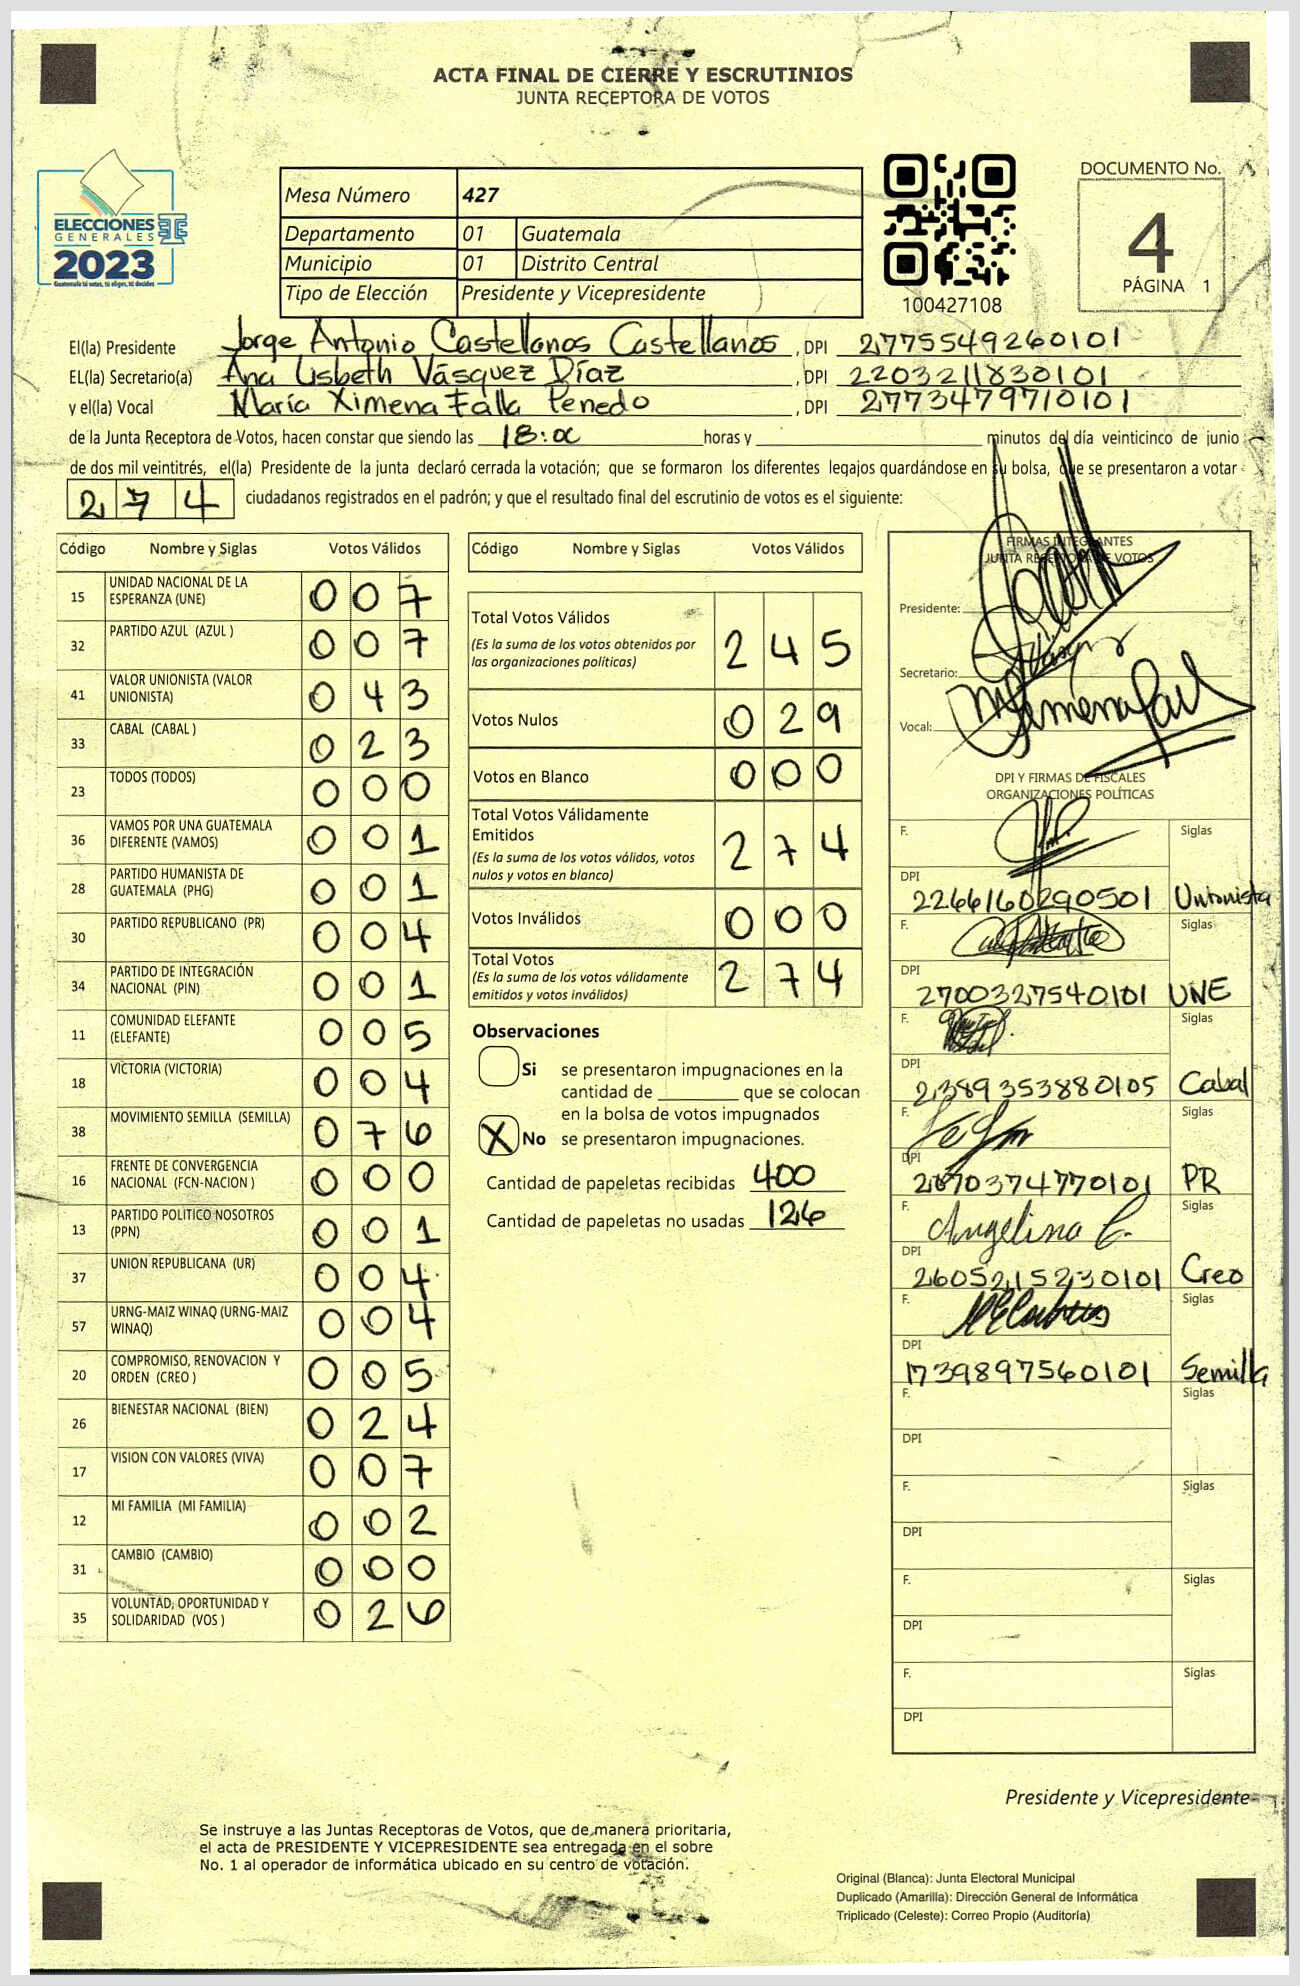 ACTA FINAL DE CIERRE Y ESCRUTINIOS
JUNTA RECEPTORA DE VOTOS
ELECCIONES
GENERALES
2023
Guatemala tú votas, tú eliges, tú decides
Mesa Número 427
Departamento 01 Guatemala
Municipio 01 Distrito Central
Tipo de Elección Presidente y Vicepresidente
100427108
DOCUMENTO No.
4
PÁGINA 1
El(la) Presidente Jorge Antonio Castellanos Castellanos , DPI 2775549260101
EL(la) Secretario(a) Ana Lisbeth Vásquez Díaz , DPI 2203211830101
y el(la) Vocal María Ximena Falla Penedo , DPI 2773479710101
de la Junta Receptora de Votos, hacen constar que siendo las 18:00 horas y minutos del día veinticinco de junio
de dos mil veintitrés, el(la) Presidente de la junta declaró cerrada la votación; que se formaron los diferentes legajos guardándose en su bolsa, que se presentaron a votar
274 ciudadanos registrados en el padrón; y que el resultado final del escrutinio de votos es el siguiente:
Código Nombre y Siglas Votos Válidos
15 UNIDAD NACIONAL DE LA ESPERANZA (UNE) 007
32 PARTIDO AZUL (AZUL ) 007
41 VALOR UNIONISTA (VALOR UNIONISTA) 043
33 CABAL (CABAL ) 023
23 TODOS (TODOS) 000
36 VAMOS POR UNA GUATEMALA DIFERENTE (VAMOS) 001
28 PARTIDO HUMANISTA DE GUATEMALA (PHG) 001
30 PARTIDO REPUBLICANO (PR) 004
34 PARTIDO DE INTEGRACIÓN NACIONAL (PIN) 001
11 COMUNIDAD ELEFANTE (ELEFANTE) 005
18 VICTORIA (VICTORIA) 004
38 MOVIMIENTO SEMILLA (SEMILLA) 076
16 FRENTE DE CONVERGENCIA NACIONAL (FCN-NACION ) 000
13 PARTIDO POLITICO NOSOTROS (PPN) 001
37 UNION REPUBLICANA (UR) 004
57 URNG-MAIZ WINAQ (URNG-MAIZ WINAQ) 004
20 COMPROMISO, RENOVACION Y ORDEN (CREO ) 005
26 BIENESTAR NACIONAL (BIEN) 024
17 VISION CON VALORES (VIVA) 007
12 MI FAMILIA (MI FAMILIA) 002
31 CAMBIO (CAMBIO) 000
35 VOLUNTAD, OPORTUNIDAD Y SOLIDARIDAD (VOS ) 026
Código Nombre y Siglas Votos Válidos
Total Votos Válidos 245
(Es la suma de los votos obtenidos por
las organizaciones políticas)
Votos Nulos 029
Votos en Blanco 000
Total Votos Válidamente
Emitidos 274
(Es la suma de los votos válidos, votos
nulos y votos en blanco)
Votos Inválidos 000
Total Votos 274
(Es la suma de los votos válidamente
emitidos y votos inválidos)
Observaciones
Si se presentaron impugnaciones en la
cantidad de que se colocan
en la bolsa de votos impugnados
X No se presentaron impugnaciones.
Cantidad de papeletas recibidas 400
Cantidad de papeletas no usadas 126
FIRMAS INTEGRANTES
JUNTA RECEPTORA DE VOTOS
Presidente:
Secretario:
Vocal:
DPI Y FIRMAS DE FISCALES
ORGANIZACIONES POLÍTICAS
F. Siglas
DPI 2266160290501 Unionista
F. Siglas
DPI 2700327540101 UNE
F. Siglas
DPI 2389353880105 Cabal
F. Siglas
DPI 2670374770101 PR
F. Angelina C. Siglas
DPI 2605215230101 Creo
F. Siglas
DPI 1739897560101 Semilla
F. Siglas
DPI
F. Siglas
DPI
F. Siglas
DPI
F. Siglas
DPI
Presidente y Vicepresidente
Se instruye a las Juntas Receptoras de Votos, que de manera prioritaria,
el acta de PRESIDENTE Y VICEPRESIDENTE sea entregada en el sobre
No. 1 al operador de informática ubicado en su centro de votación.
Original (Blanca): Junta Electoral Municipal
Duplicado (Amarilla): Dirección General de Informática
Triplicado (Celeste): Correo Propio (Auditoría)